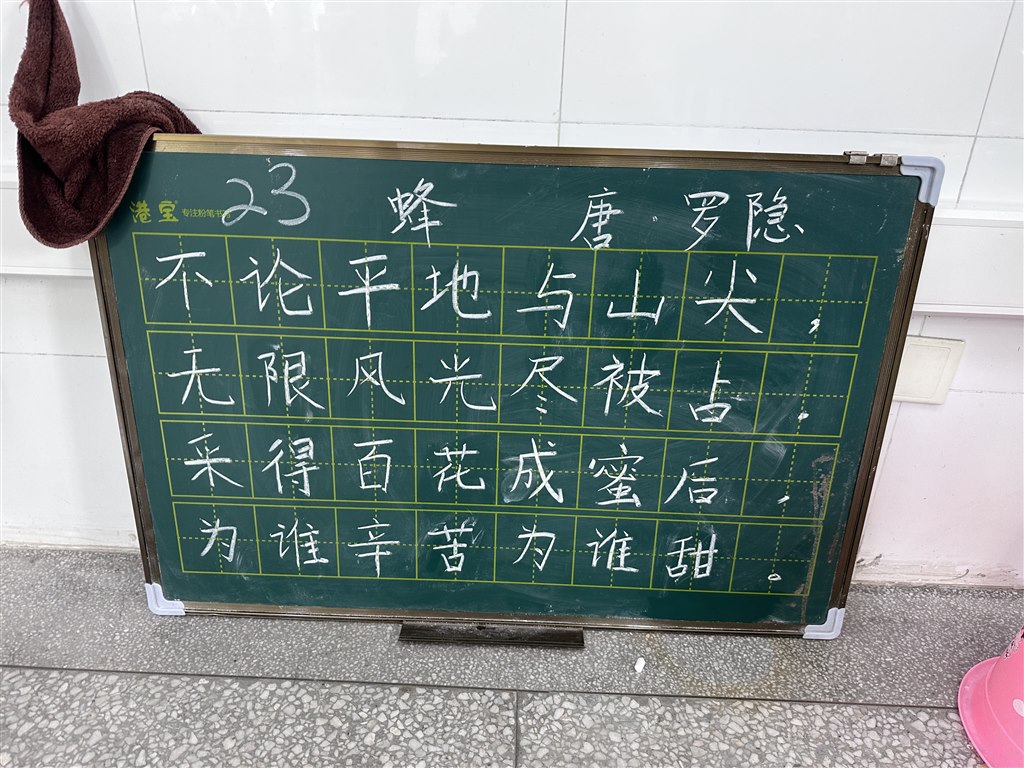 港宝 专注粉笔书写
23 蜂 唐 罗隐
不论平地与山尖，
无限风光尽被占。
采得百花成蜜后，
为谁辛苦为谁甜。